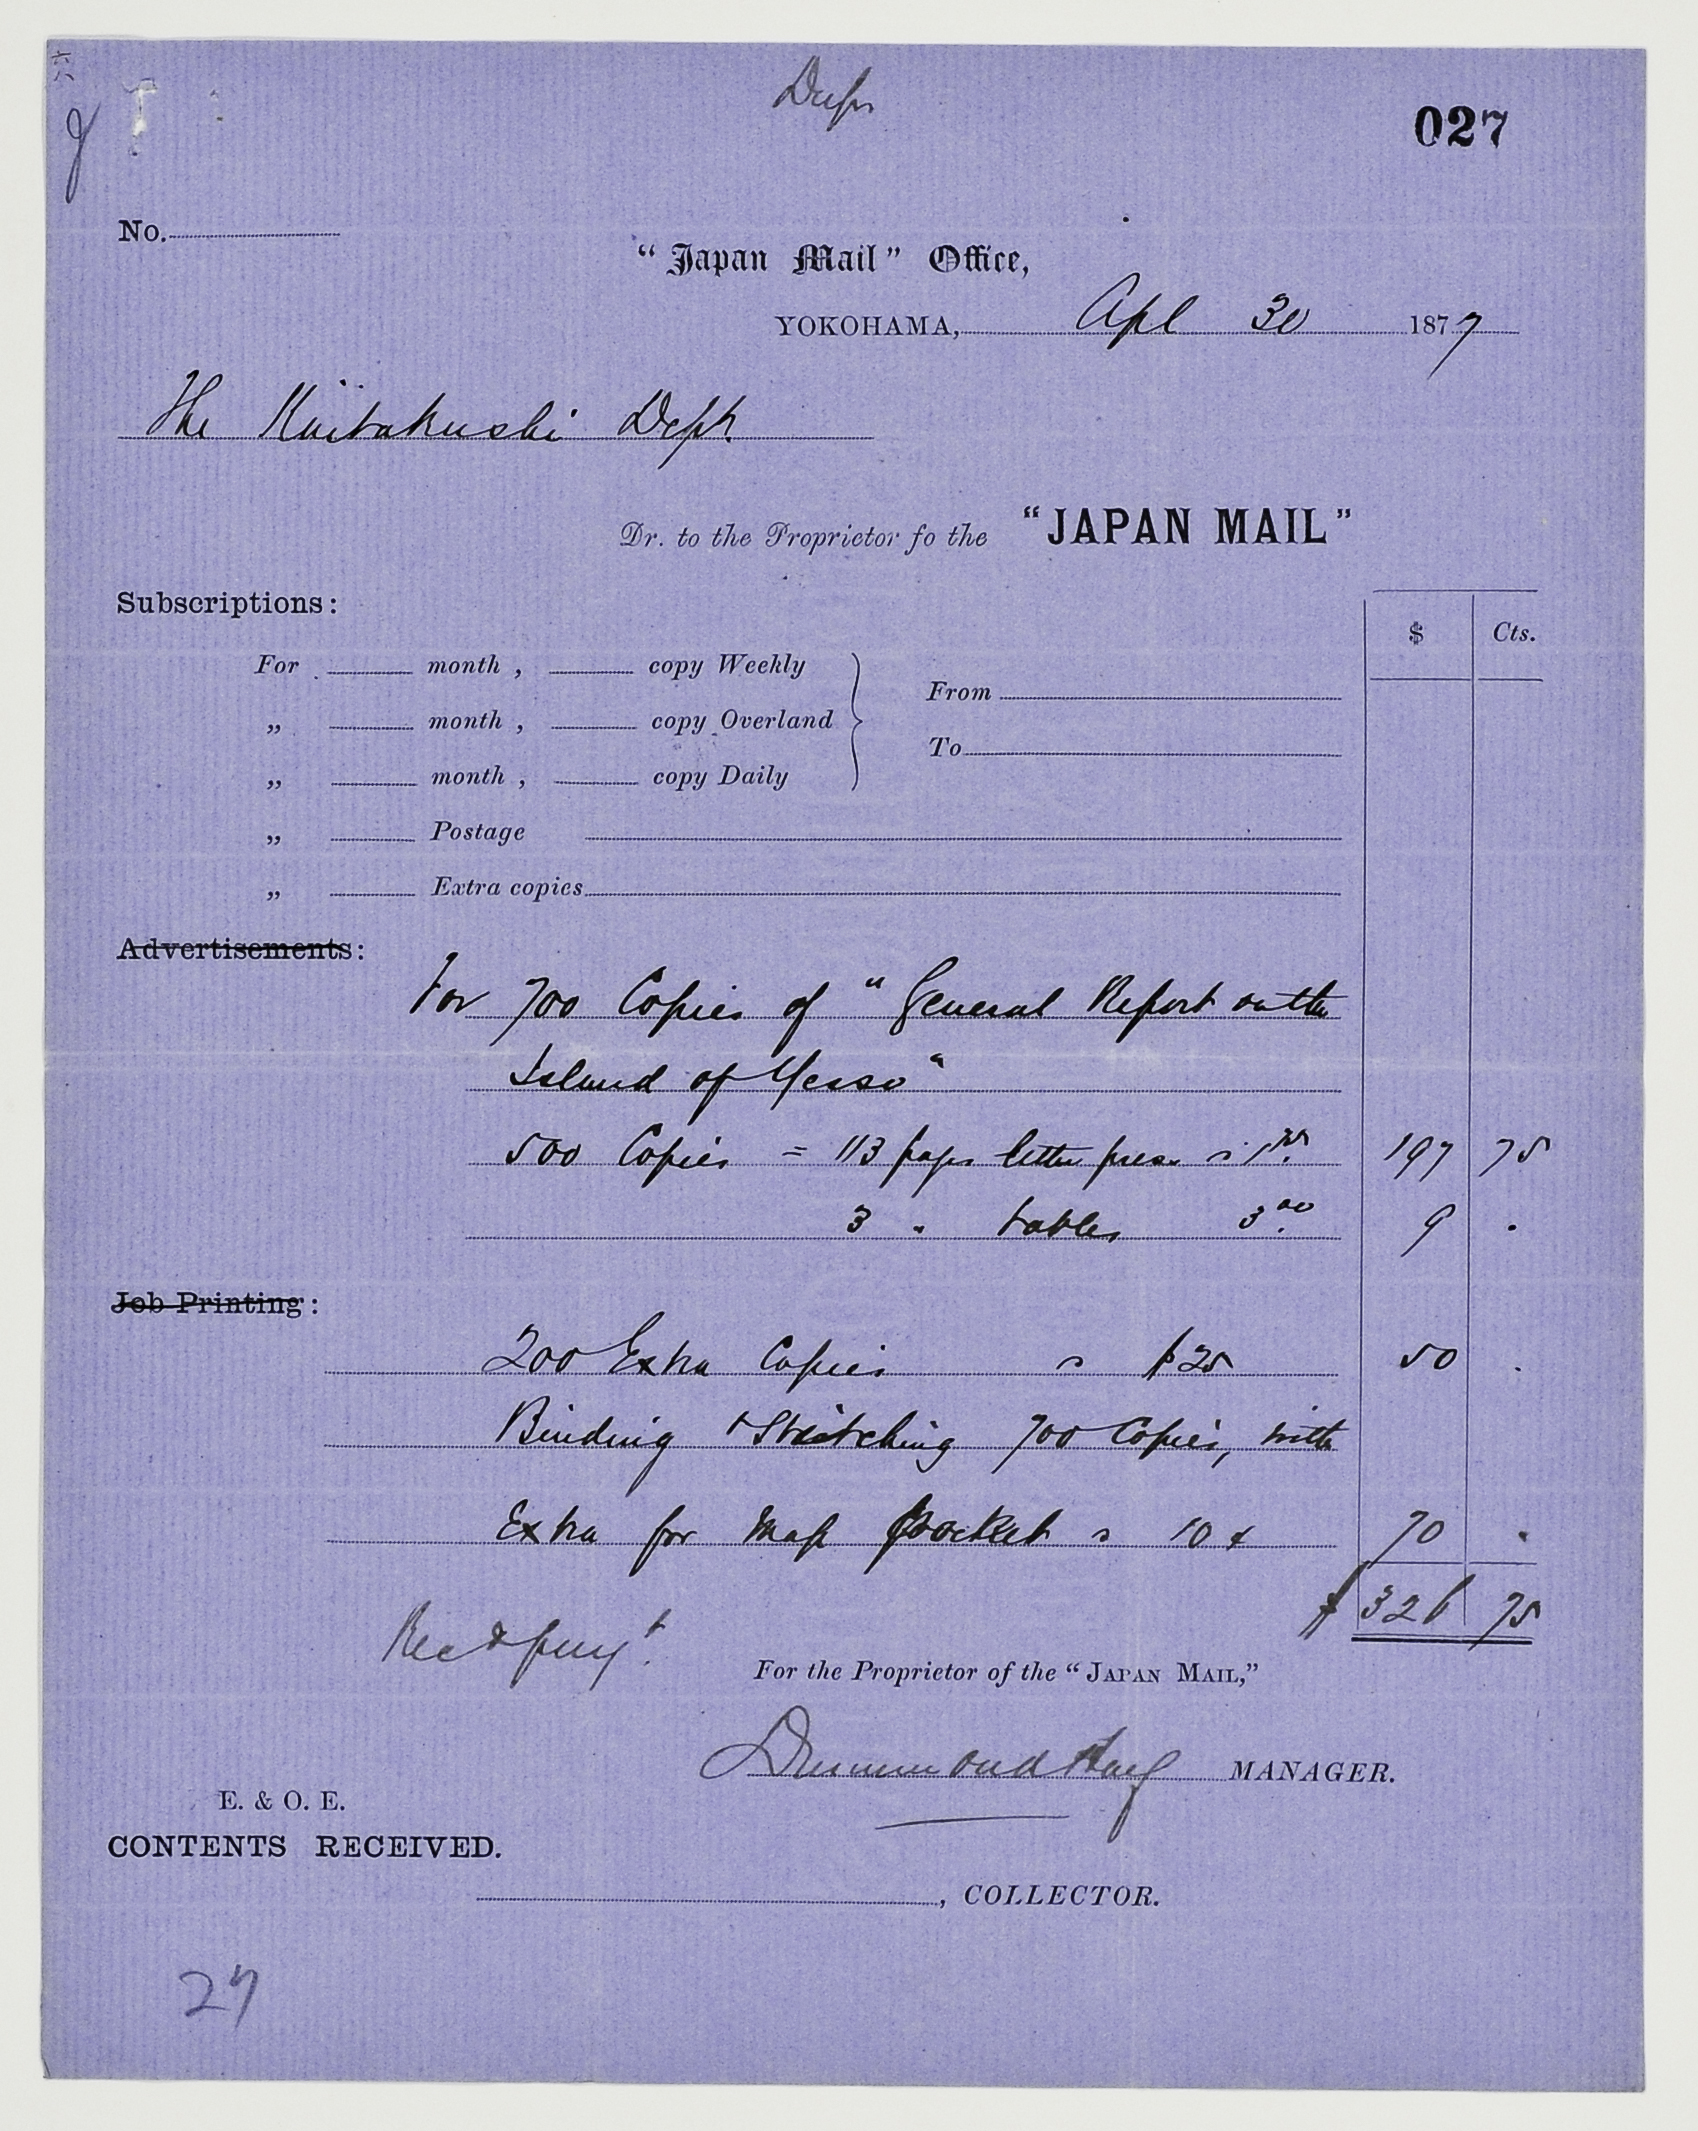 Dup
027
No.
"Japan Mail" Office,
YOKOHAMA, Apl 30 1877
The Kaitakushi Dept.
Dr. to the Proprietor fo the "JAPAN MAIL"
Subscriptions:
$ Cts.
For month , copy Weekly
From
„ month , copy Overland
To
„ month , copy Daily
„ Postage
„ Extra copies
Advertisements:
For 700 Copies of "General Report on the
Island of Yesso"
500 Copies = 113 pages letter press a 1.75 197 75
3 " tables 3.00 9 .
Job Printing:
200 Extra Copies a $25 50 .
Binding & Stitching 700 Copies, with
Extra for Map Pocket a 10 ¢ 70 .
$ 326 75
Recd paymt.
For the Proprietor of the "JAPAN MAIL,"
Drummond Hay MANAGER.
E. & O. E.
CONTENTS RECEIVED.
, COLLECTOR.
27